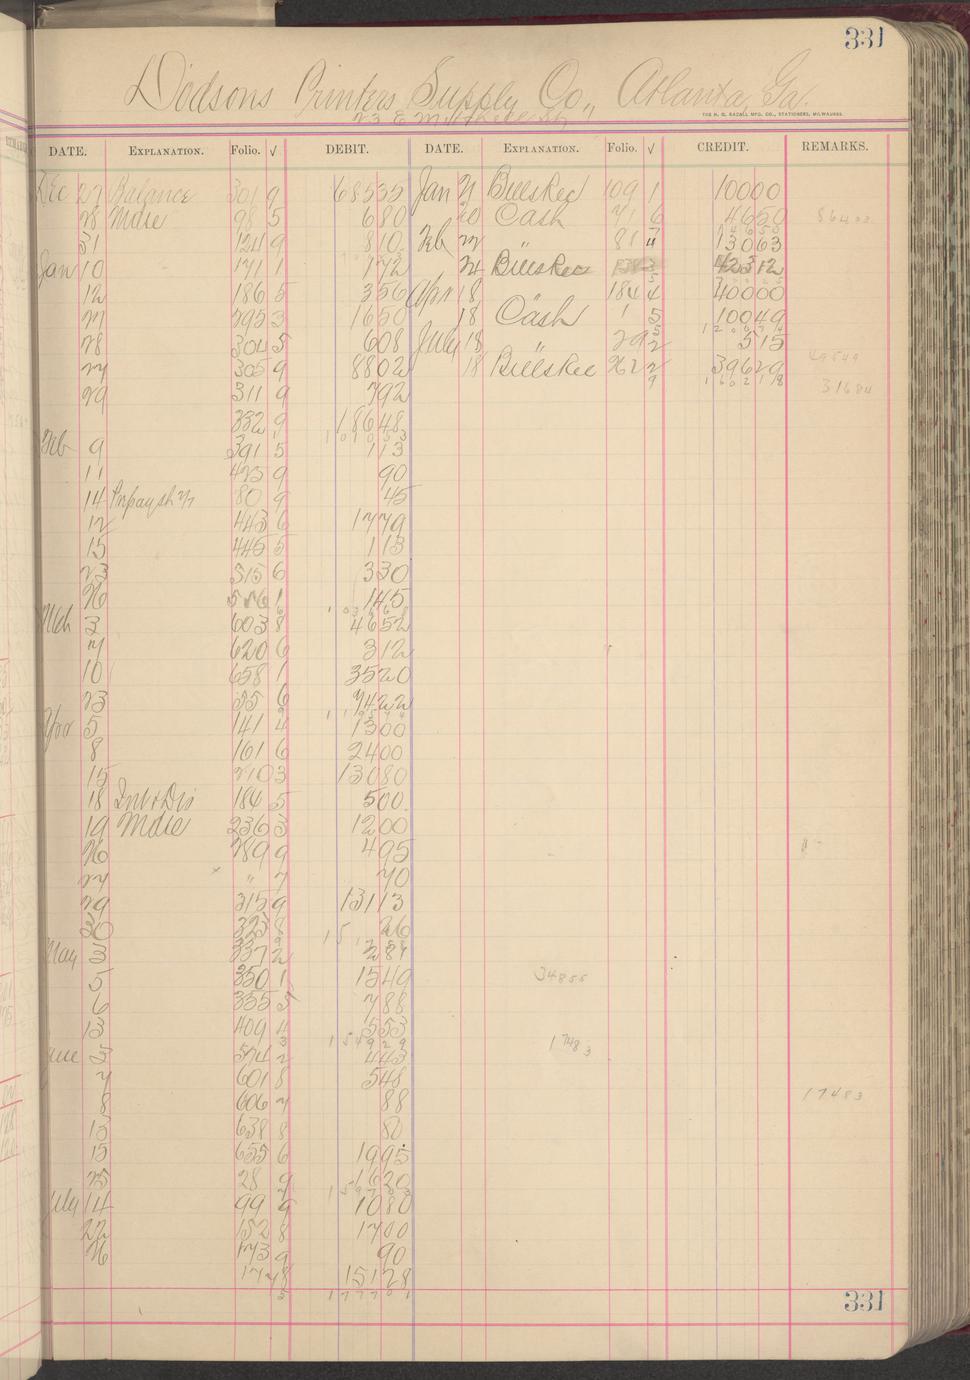 331
Dodsons Printers Supply Co., Atlanta, Ga.
23 E Mitchell St
THE H. G. RAZALL MFG. CO., STATIONERS, MILWAUKEE.
DATE. EXPLANATION. Folio. √ DEBIT. DATE. EXPLANATION. Folio. √ CREDIT. REMARKS.
Dec 27 Balance 301 9 68535 Jan 21 BillsRec 109 1 10000
28 Mdse 98 5 680 20 Cash 71 6 4650
31 124 9 810 Feb 22 " 81 4 13063
Jan 10 171 1 172 24 BillsRec 42312
12 186 5 356 Apr 18 " 184 4 40000
27 295 3 1650 18 Cash 1 5 10049
28 304 5 608 July 18 " 29 2 515
27 305 9 8802 18 BillsRec 262 2 39629
29 311 9 792 31684
332 9 18648
Feb 9 391 5 113
11 425 9 90
14 80 9 45
12 443 6 1779
15 445 5 113
23 515 6 330
26 1 145
Mch 3 603 8 4652
7 620 6 312
10 658 1 3520
23 35 6 7422
Apr 5 141 4 1300
8 161 6 2400
15 210 3 13080
18 Int & Dis 184 5 500
19 Mdse 236 3 1200
26 289 9 495
27 " 7 70
29 315 9 13113
30 323 8 26
May 3 337 2 287
5 350 1 1549 34855
6 355 5 788
13 409 4 553
June 3 574 2 443 17483
7 601 8 548
8 606 7 88 17483
13 638 8 80
15 655 6 1995
25 28 9 1620
July 14 99 9 1080
22 152 8 1700
26 173 9 90
174 8 15128
177701
331